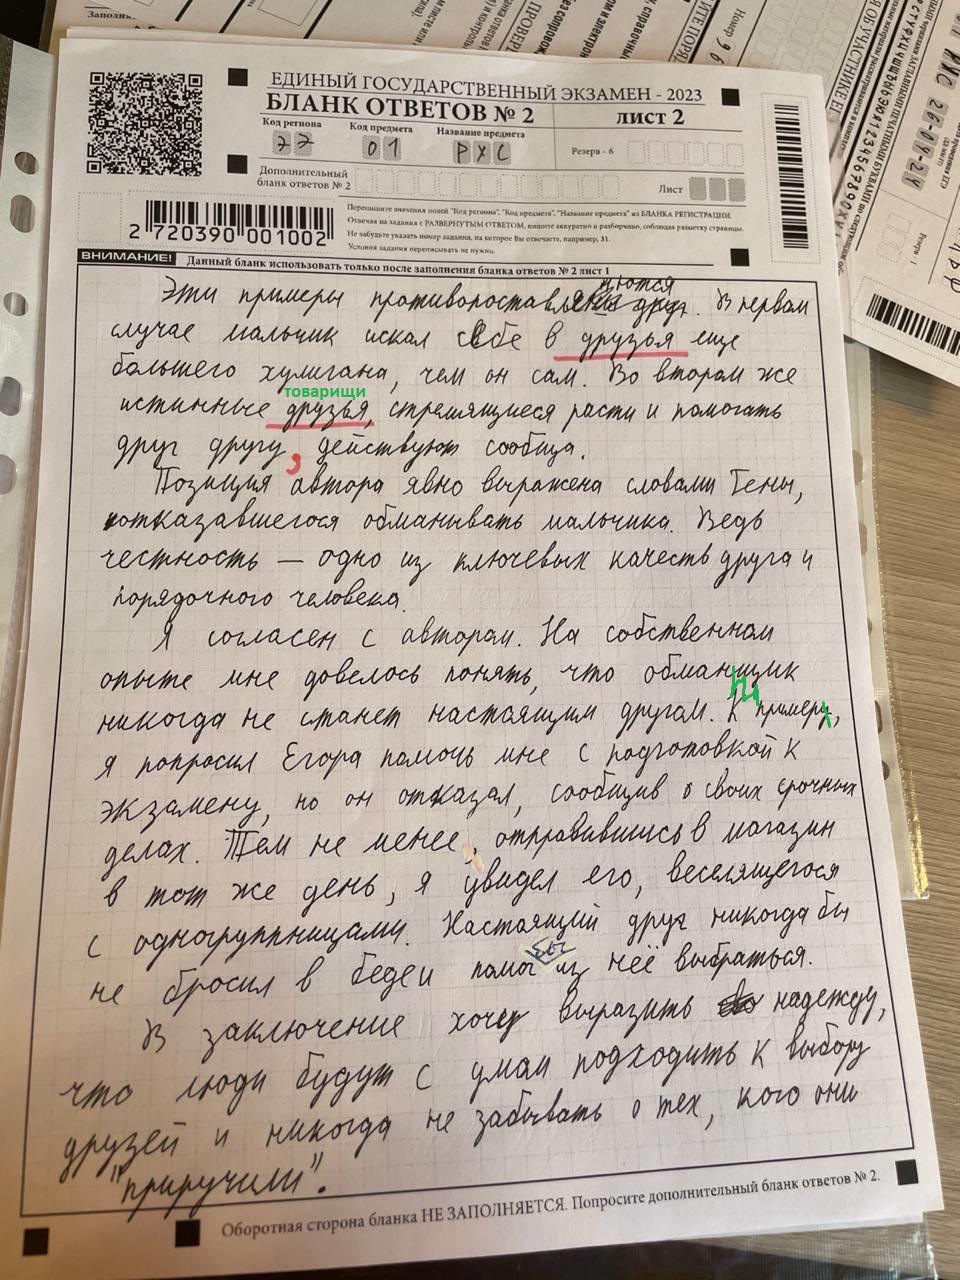 ЕДИНЫЙ ГОСУДАРСТВЕННЫЙ ЭКЗАМЕН - 2023
БЛАНК ОТВЕТОВ № 2
лист 2
Код региона
Код предмета
Название предмета
77
01
РХС
Резерв - 6
Дополнительный
бланк ответов № 2
Лист
2 720390 001002
Перепишите значения полей "Код региона", "Код предмета", "Название предмета" из БЛАНКА РЕГИСТРАЦИИ.
Отвечая на задания с РАЗВЕРНУТЫМ ОТВЕТОМ, пишите аккуратно и разборчиво, соблюдая разметку страницы.
Не забудьте указать номер задания, на которое Вы отвечаете, например, 31.
Условия задания переписывать не нужно.
ВНИМАНИЕ! Данный бланк использовать только после заполнения бланка ответов № 2 лист 1
Эти примеры противопоставляются. В первом
случае мальчик искал себе в друзья еще
большего хулигана, чем он сам. Во втором же
товарищи
истинные друзья, стремящиеся расти и помогать
друг другу, действуют сообща.
Позиция автора явно выражена словами Гены,
отказавшегося обманывать мальчика. Ведь
честность — одно из ключевых качеств друга и
порядочного человека.
Я согласен с автором. На собственном
опыте мне довелось понять, что обманщик
никогда не станет настоящим другом. К примеру,
я попросил Егора помочь мне с подготовкой к
экзамену, но он отказал, сообщив о своих срочных
делах. Тем не менее, отправившись в магазин
в тот же день, я увидел его, веселящегося
с одногруппницами. Настоящий друг никогда бы
не бросил в беде и помог бы из неё выбраться.
В заключение хочу выразить надежду,
что люди будут с умом подходить к выбору
друзей и никогда не забывать о тех, кого они
"приручили".
Оборотная сторона бланка НЕ ЗАПОЛНЯЕТСЯ. Попросите дополнительный бланк ответов № 2.